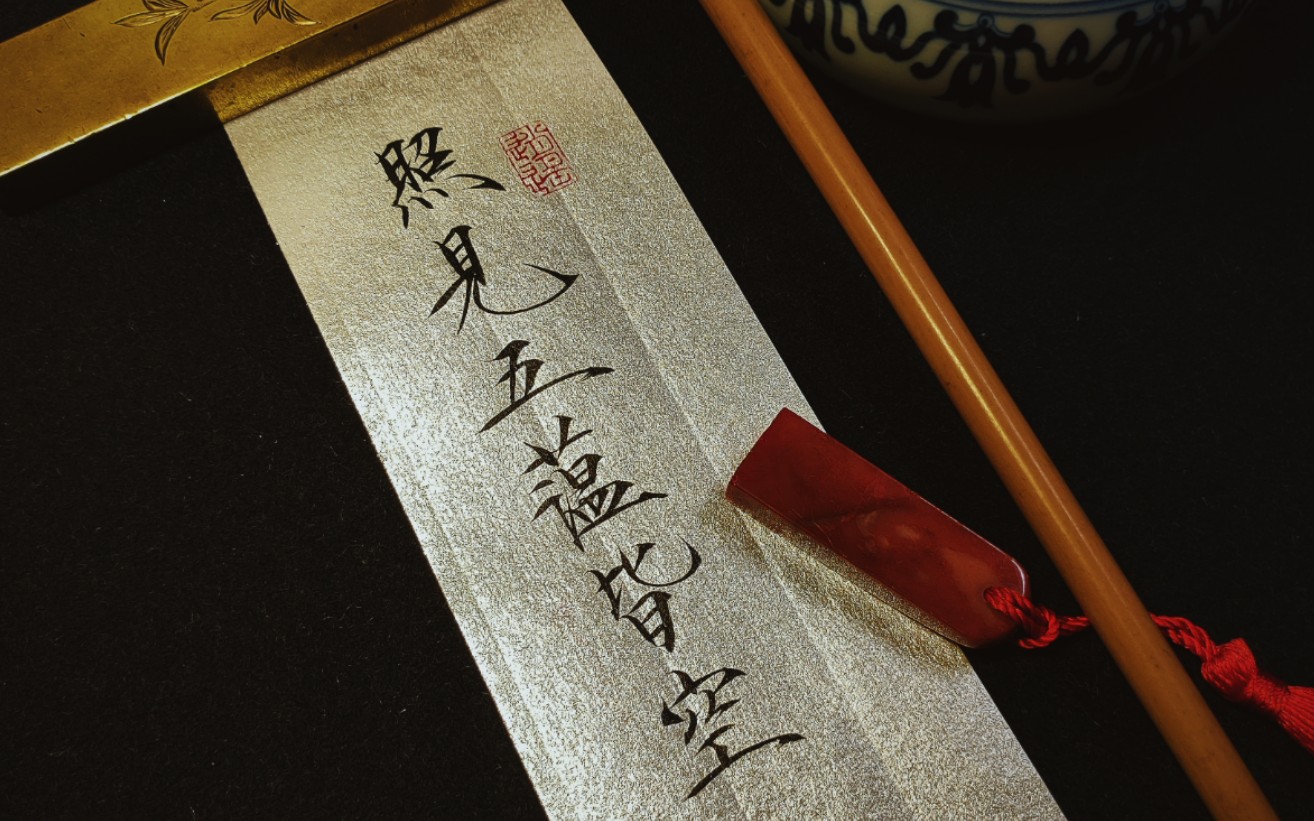 照見五蘊皆空